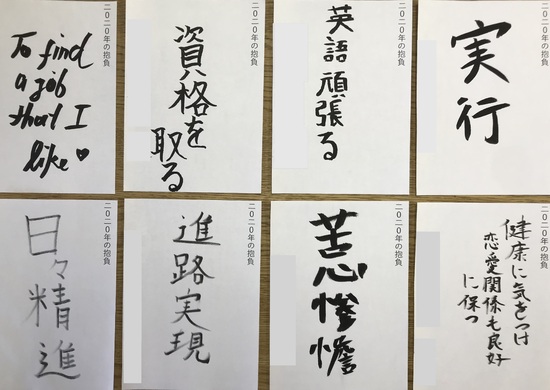 二〇二〇年の抱負
To find
a job
that I
like♥
二〇二〇年の抱負
資格を
取る
二〇二〇年の抱負
英語頑張る
二〇二〇年の抱負
実行
二〇二〇年の抱負
日々精進
二〇二〇年の抱負
進路実現
二〇二〇年の抱負
苦心惨憺
二〇二〇年の抱負
健康に気をつけ
恋愛関係も良好
に保つ